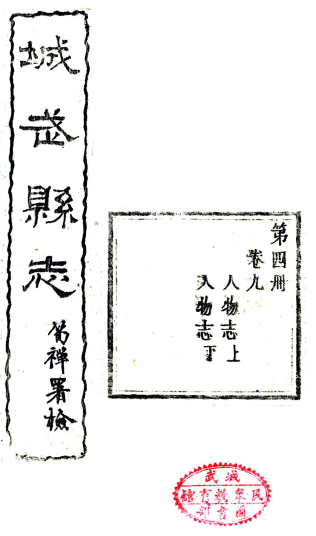 城武縣志
禪署檢
第四冊
卷九
人物志上
人物志下
城武
民眾教育館
圖書部